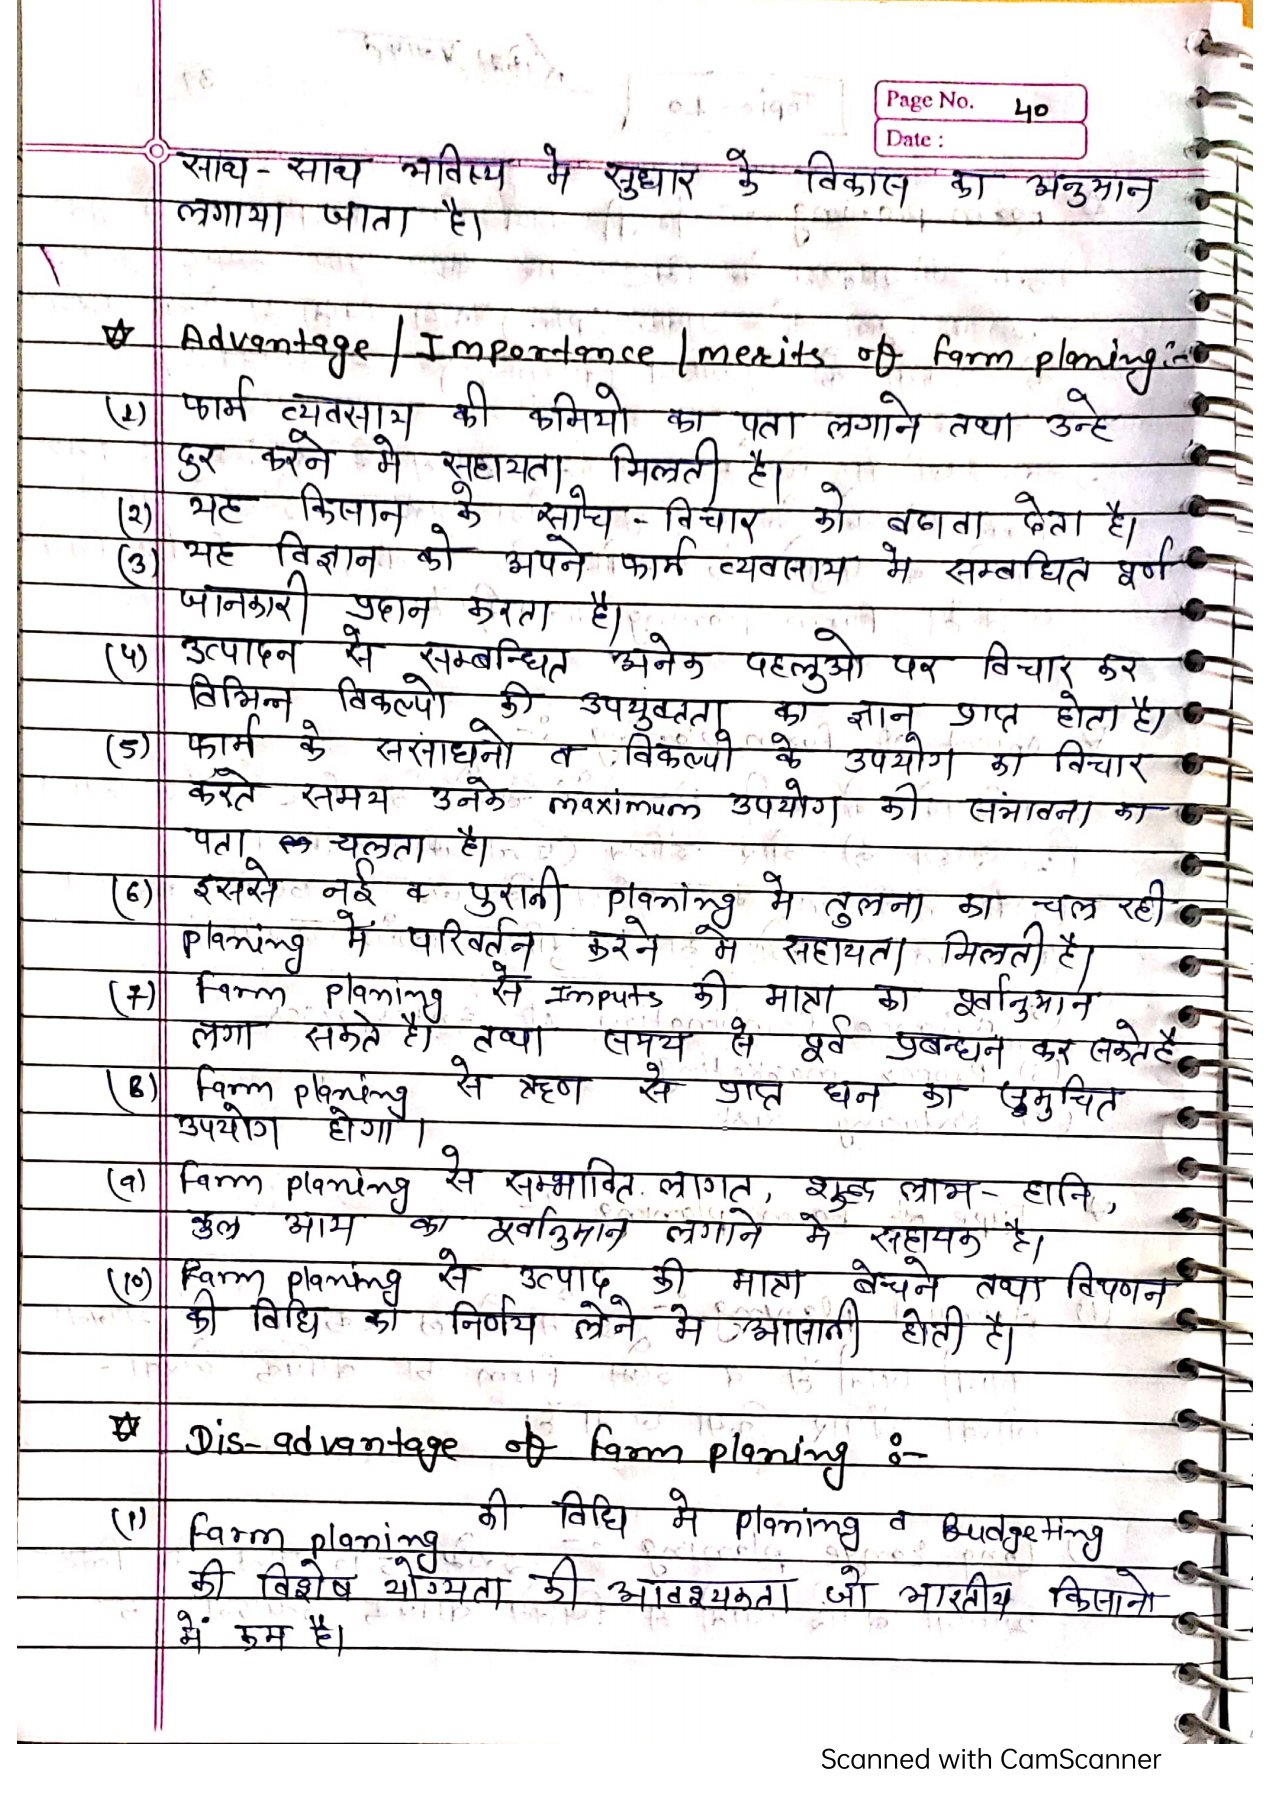 Page No. 40
Date :
साथ - साथ भविष्य मे सुधार के विकास का अनुमान
लगाया जाता है।
☆ Advantage / Importance / merits of farm planing :-
(1) फार्म व्यवसाय की कमियो का पता लगाने तथा उन्हे
दुर करने मे सहायता मिलती है।
(2) यह किसान के सोच - विचार को बढावा देता है।
(3) यह विज्ञान को अपने फार्म व्यवसाय मे सम्बधित पूर्ण
जानकारी प्रदान करता है।
(4) उत्पादन से सम्बन्धित अनेक पहलुओ पर विचार कर
विभिन्न विकल्पो की उपयुक्तता का ज्ञान प्राप्त होता है।
(5) फार्म के संसाधनो व विकल्पो के उपयोग का विचार
करते समय उनके maximum उपयोग की संभावना का
पता चलता है।
(6) इससे नई व पुरानी planing मे तुलना का चल रही
planing में परिवर्तन करने मे सहायता मिलती है।
(7) Farm planing से Inputs की मात्रा का पूर्वानुमान
लगा सकते है। तथा समय से पूर्व प्रबन्धन कर सकते है
(8) Farm planing से ऋण से प्राप्त धन का सुमुचित
उपयोग होगा।
(9) Farm planing से सम्भावित लागत, शुद्ध लाभ - हानि,
कुल आय का पूर्वानुमान लगाने मे सहायक है।
(10) Farm planing से उत्पाद की मात्रा बेचने तथा विपणन
की विधि का निर्णय लेने मे आसानी होती है।
☆ Dis-advantage of farm planing :-
(1) farm planing की विधि मे planing व Budgeting
की विशेष योग्यता की आवश्यकता जो भारतीय किसानो
में कम है।
Scanned with CamScanner